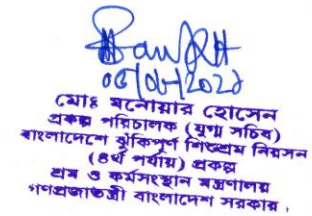 ০৫/০৮/২০২১
মোঃ মনোয়ার হোসেন
প্রকল্প পরিচালক (যুগ্ম সচিব)
বাংলাদেশে ঝুঁকিপূর্ণ শিশুশ্রম নিরসন
(৪র্থ পর্যায়) প্রকল্প
শ্রম ও কর্মসংস্থান মন্ত্রণালয়
গণপ্রজাতন্ত্রী বাংলাদেশ সরকার।